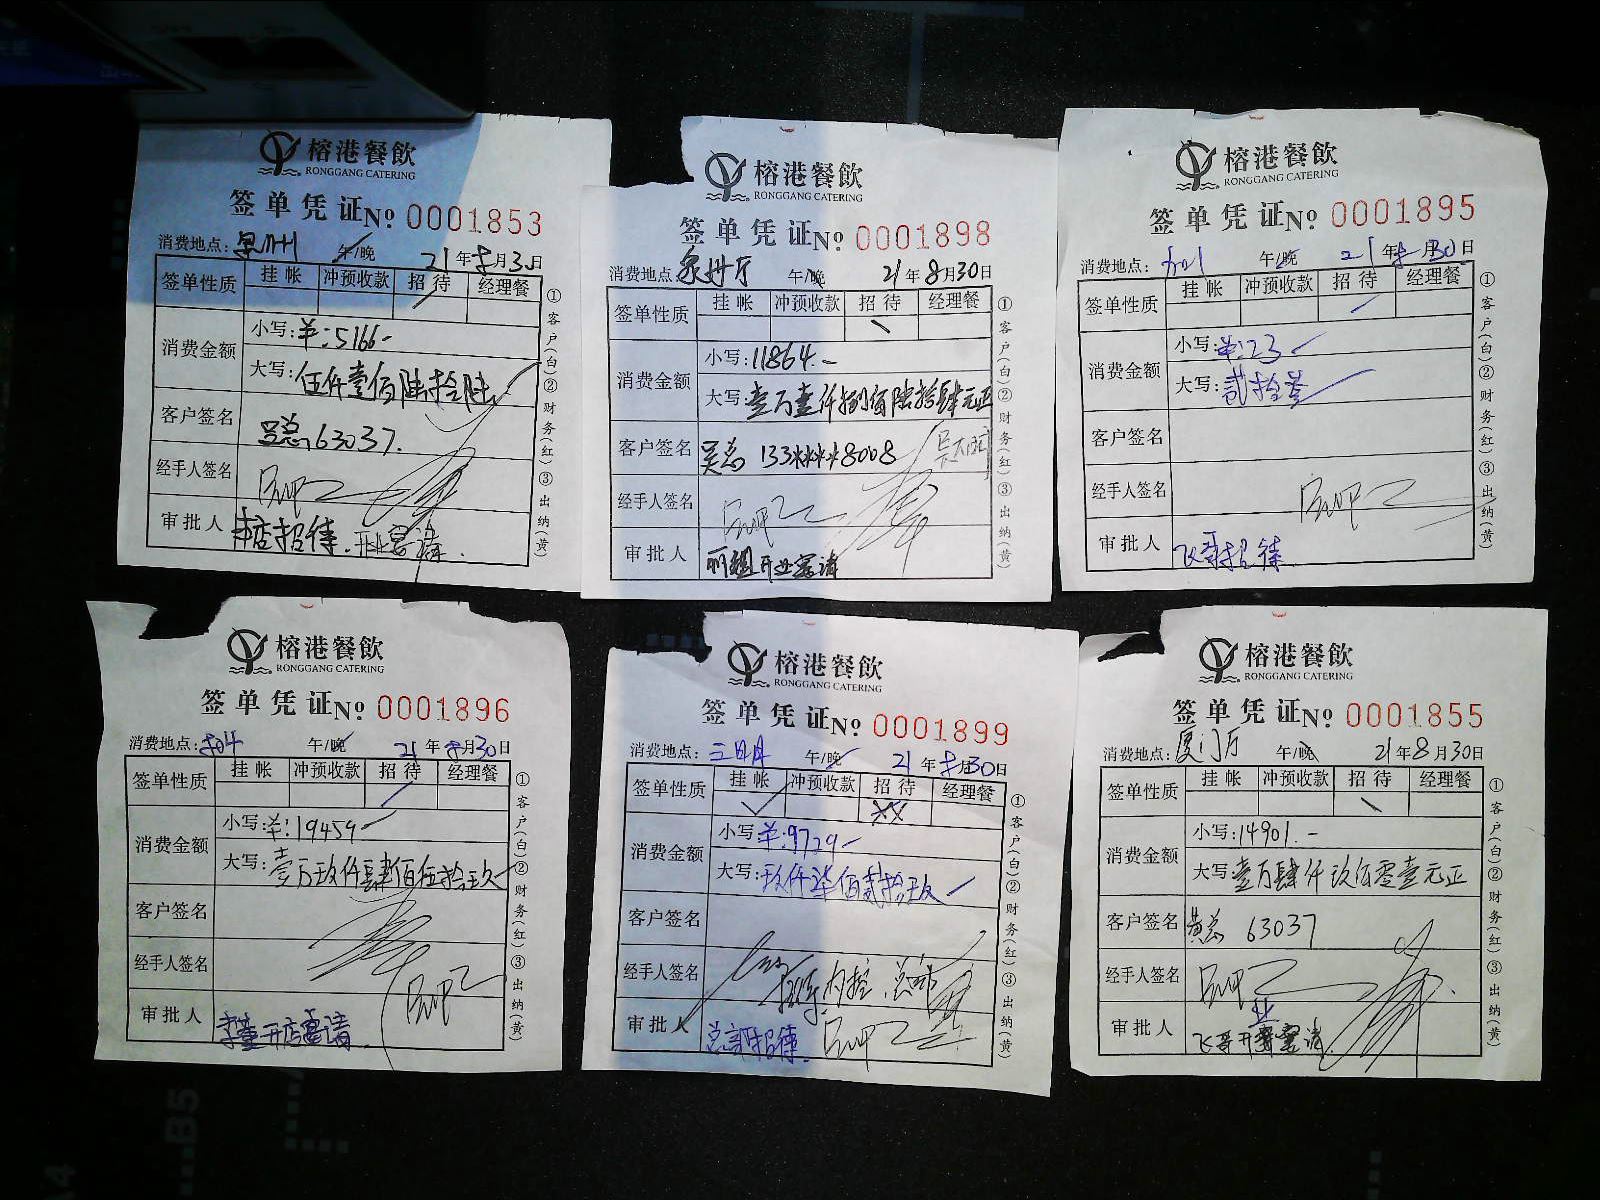 榕港餐飲
RONGGANG CATERING
签单凭证No 0001853
消费地点: 午/晚 21年8月30日
签单性质 挂帐 冲预收款 招待 经理餐
消费金额 小写:羊:5166-
大写:伍仟壹佰陆拾陆
客户签名 吕总63037.
经手人签名
审批人 本店招待.开业宴请.
①客户(白)②财务(红)③出纳(黄)
榕港餐飲
RONGGANG CATERING
签单凭证No 0001898
消费地点:泉州厅 午/晚 21年8月30日
签单性质 挂帐 冲预收款 招待 经理餐
消费金额 小写:11864.-
大写:壹万壹仟捌佰陆拾肆元正
客户签名 吴总 133****8008
经手人签名
审批人 丽姐开业宴请
①客户(白)②财务(红)③出纳(黄)
榕港餐飲
RONGGANG CATERING
签单凭证No 0001895
消费地点: 午/晚 21年8月30日
签单性质 挂帐 冲预收款 招待 经理餐
消费金额 小写:羊:23
大写:贰拾叁
客户签名
经手人签名
审批人 飞哥招待.
①客户(白)②财务(红)③出纳(黄)
榕港餐飲
RONGGANG CATERING
签单凭证No 0001896
消费地点: 午/晚 21年8月30日
签单性质 挂帐 冲预收款 招待 经理餐
消费金额 小写:羊:19459
大写:壹万玖仟肆佰伍拾玖
客户签名
经手人签名
审批人 李董开店宴请.
①客户(白)②财务(红)③出纳(黄)
榕港餐飲
RONGGANG CATERING
签单凭证No 0001899
消费地点:三明 午/晚 21年8月30日
签单性质 挂帐 冲预收款 招待 经理餐
消费金额 小写:羊:9729-
大写:玖仟柒佰贰拾玖
客户签名
经手人签名
审批人 招待.
①客户(白)②财务(红)③出纳(黄)
榕港餐飲
RONGGANG CATERING
签单凭证No 0001855
消费地点:厦门厅 午/晚 21年8月30日
签单性质 挂帐 冲预收款 招待 经理餐
消费金额 小写:14901.-
大写:壹万肆仟玖佰零壹元正
客户签名 黄总 63037
经手人签名
审批人 飞哥开业宴请
①客户(白)②财务(红)③出纳(黄)
A4
B5